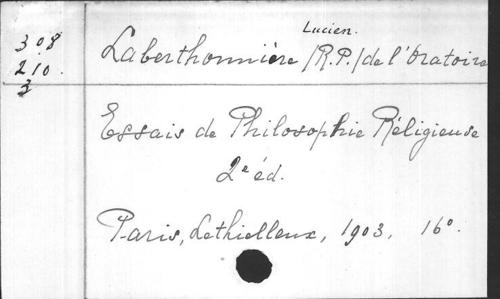 Lucien.
308 Laberthonnière /R.P./ de l'Oratoire
210.
3
Essais de Philosophie Réligieuse
2e éd.
Paris, Lethielleux, 1903, 16°.